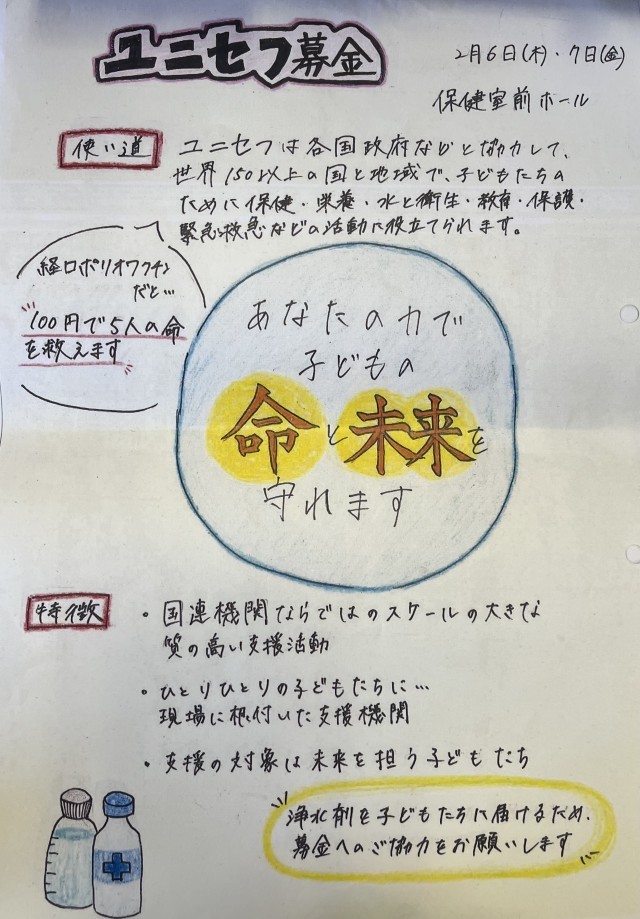 ユニセフ募金
2月6日(木)・7日(金)
保健室前ホール
使い道
ユニセフは各国政府などと協力して、
世界150以上の国と地域で、子どもたちの
ために保健・栄養・水と衛生・教育・保護・
緊急救急などの活動に役立てられます。
経口ポリオワクチン
だと…
100円で5人の命
を救えます
あなたの力で
子どもの
命と未来を
守れます
特徴
・国連機関ならではのスケールの大きな
質の高い支援活動
・ひとりひとりの子どもたちに…
現場に根付いた支援機関
・支援の対象は未来を担う子どもたち
浄水剤を子どもたちに届けるため、
募金へのご協力をお願いします